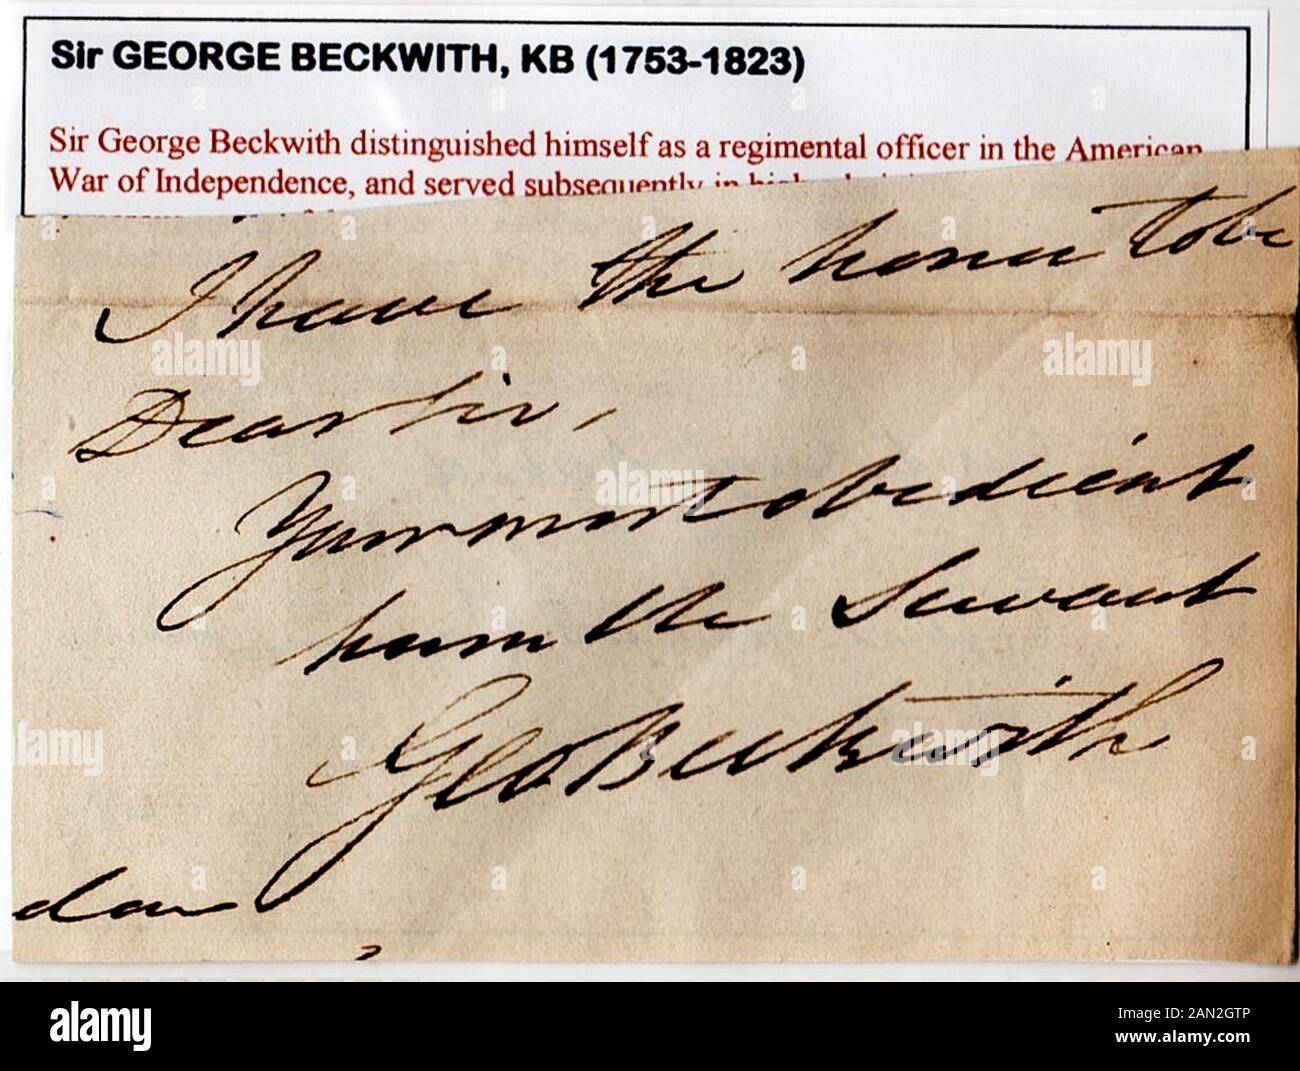 Sir GEORGE BECKWITH, KB (1753-1823)
Sir George Beckwith distinguished himself as a regimental officer in the American
War of Independence, and served subsequently in
I have the honor to be
Dear Sir,
Your most obedient
humble Servant
Geo Beckwith
alamy
Image ID: 2AN2GTP
www.alamy.com